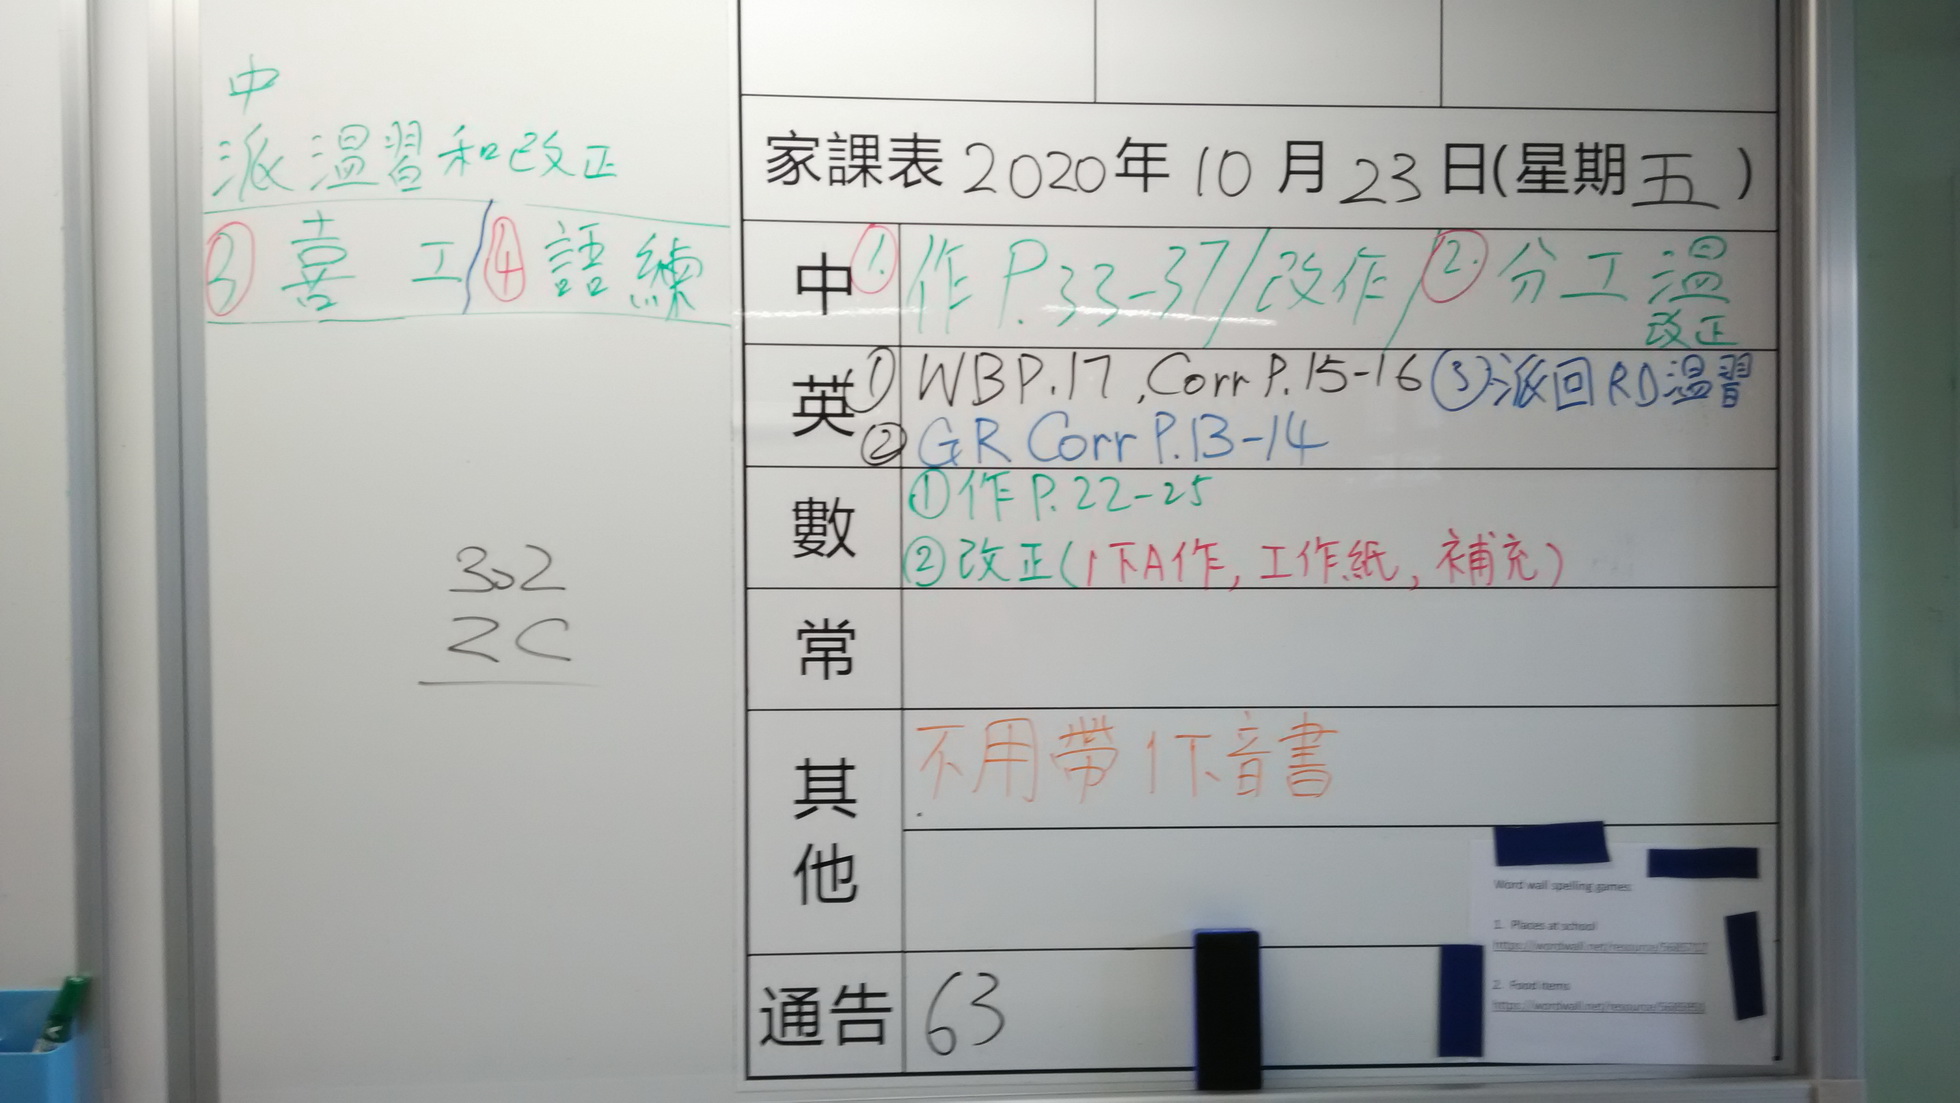 中
派溫習和改正
③喜 工/④語練
302
2C
家課表2020年10月23日(星期五)
中 ①作P.33-37/改作/②分工溫
改正
英 ①WBP.17,Corr P.15-16 ③派回RD溫習
②GR Corr P.13-14
數 ①作P.22-25
②改正(1下A作,工作紙,補充)
常
其他 不用帶1下音書
通告 63
Word wall spelling games
1. Places at school
2. Food items